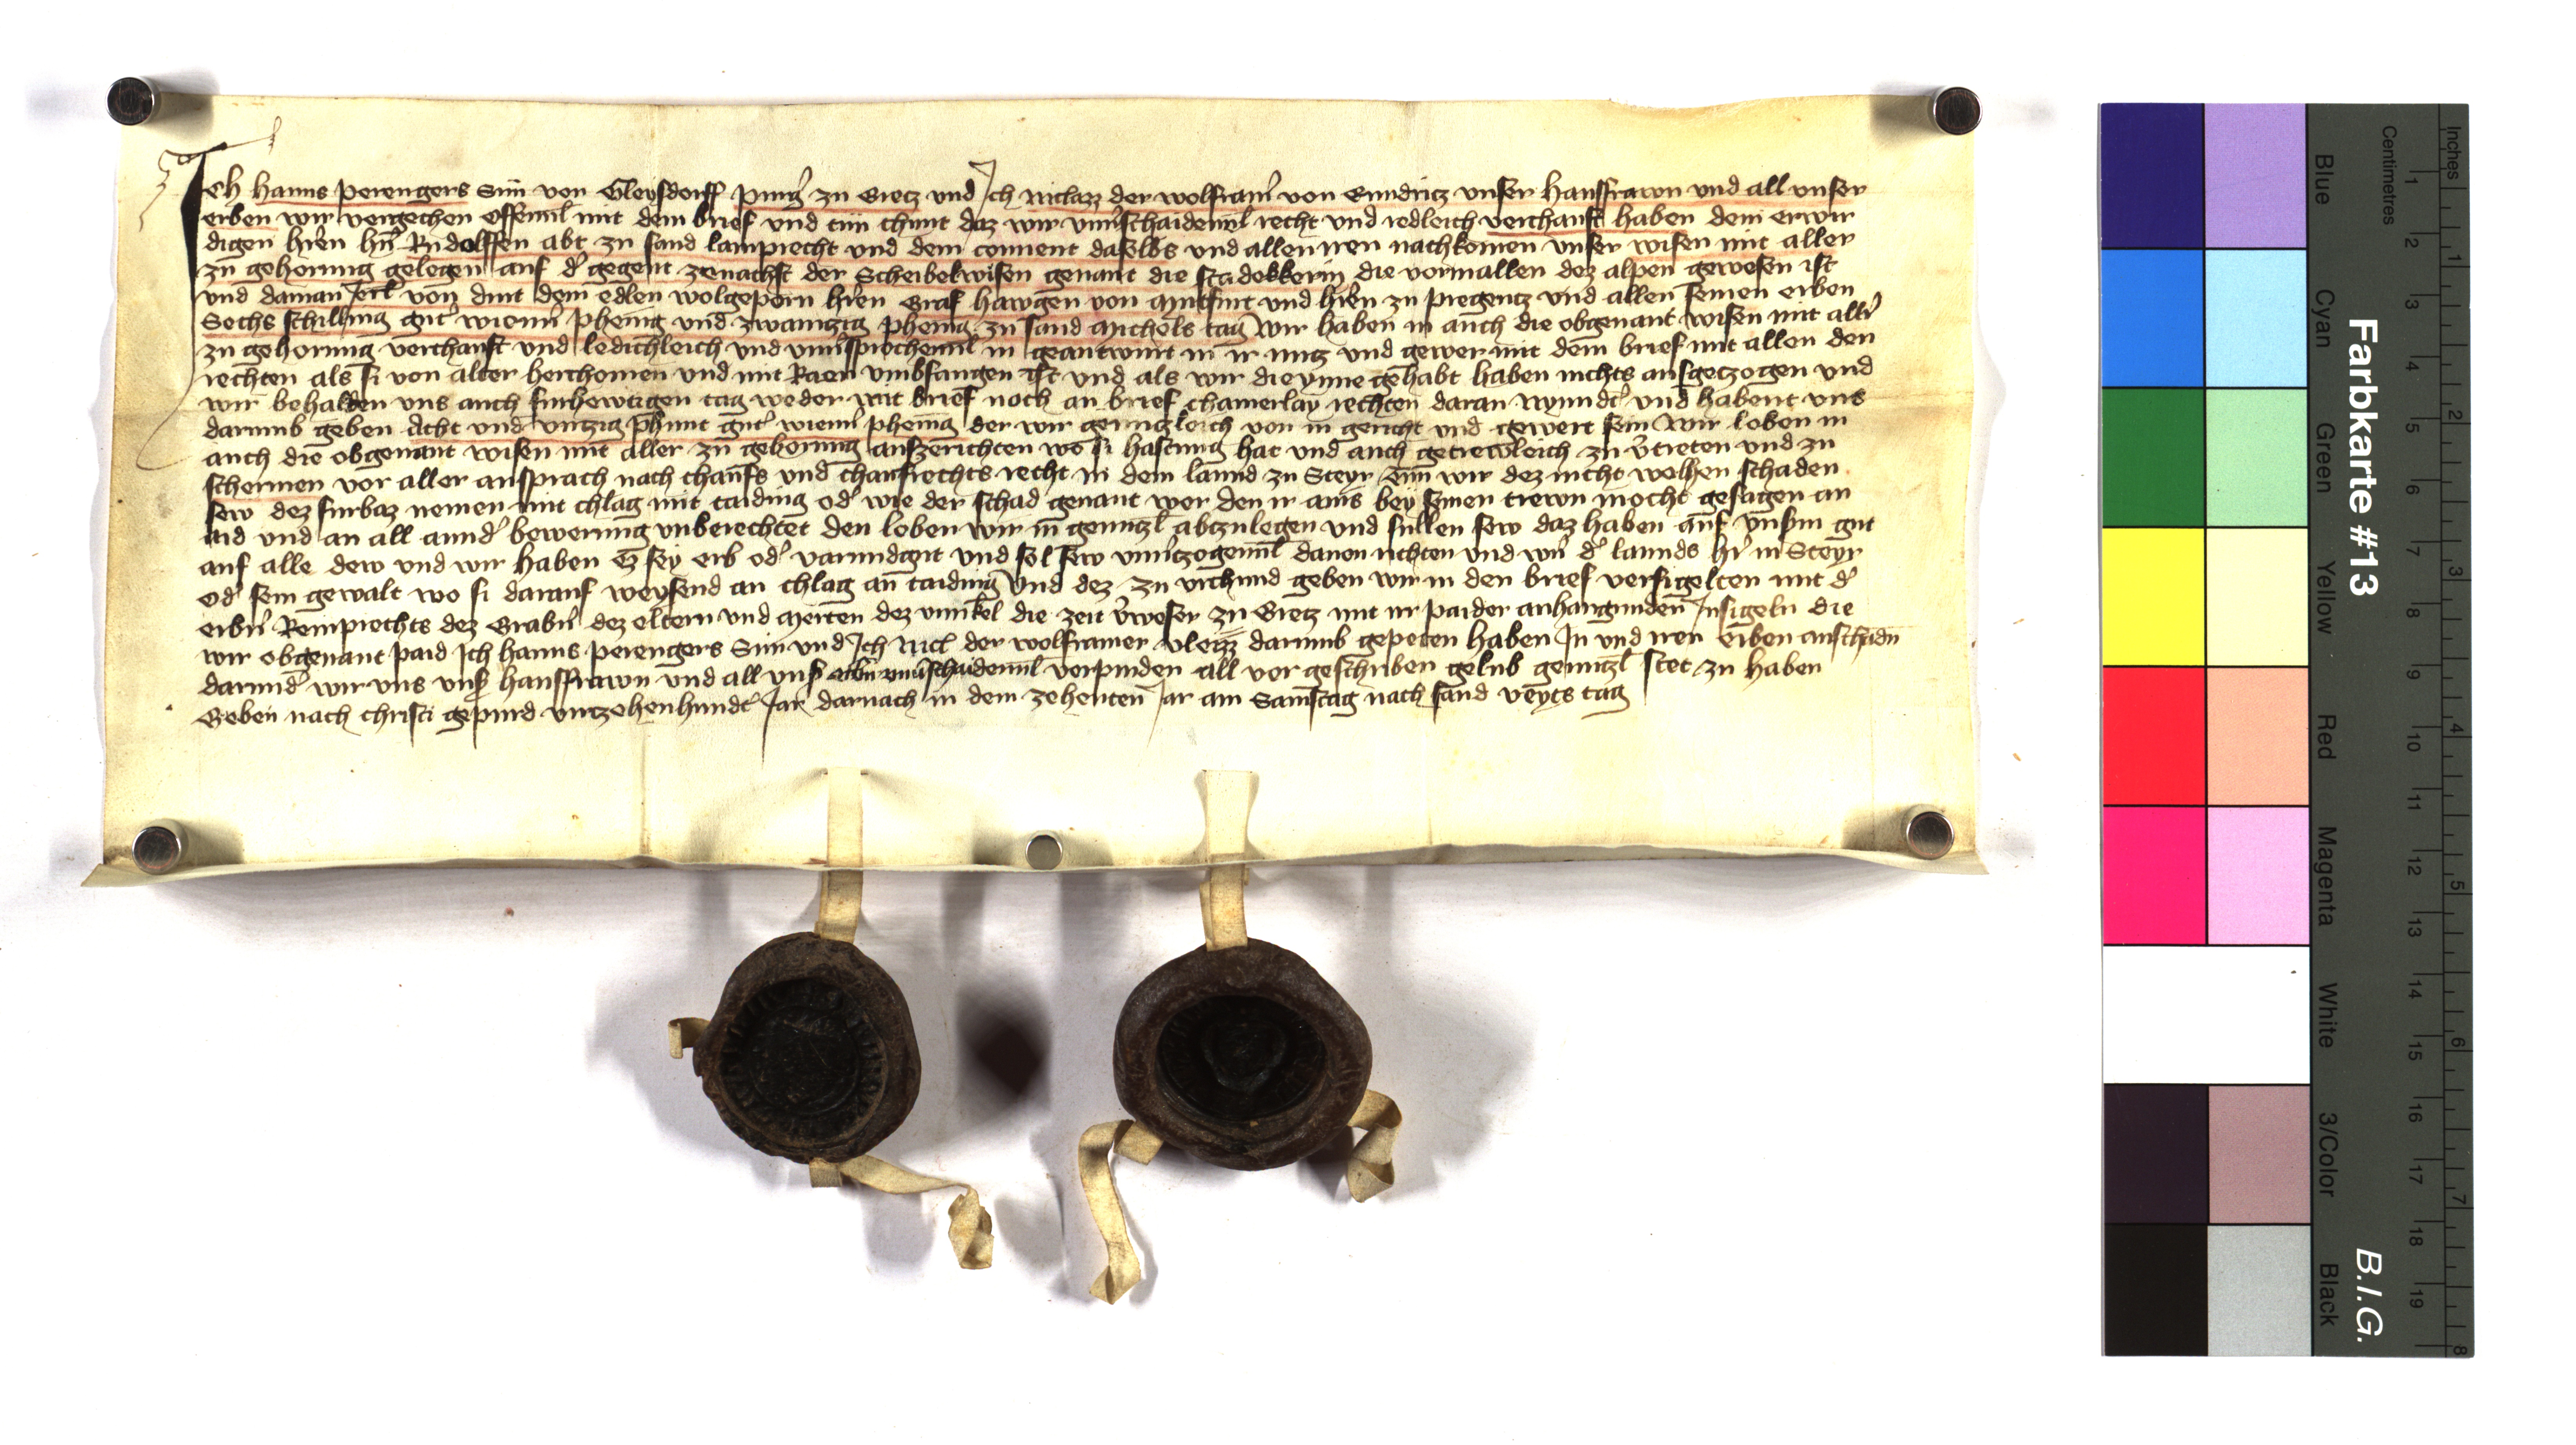 Ich Hanns Perengers Sun von Gleysdorff Purg̉ zu Gretz und Ich Niclaz der Wolframˀ von Enndritz unser hausfrawn und all unser
erben wir vergechen offennl̄ mit dem brief und tun chunt daz wir unuˀschaidennl̄ recht und redleich verchauft haben dem erwir
digen hr̄en hn̄ Rudolffen abt zu sand Lamprecht und dem conuent daselbs und allen iren nachkomen unser wisen mit aller
zu gehorung gelegen auf dˀ gegent zenachst der Scheibelwisen genant die Stadekkerin die vormallen dez alpen gewesen ist
und daman Jerl̄ von dint dem edlen wolgeporn hr̄en Graf Hawgen von Muntfurt und hr̄en zu Pregentz und allen seinen erben
Sechs schilling gutˀ wiennˀ phenig und zwaintzig phenig zu sand Michels tag Wir haben in auch die obgenant wisen mit allˀ
zu gehorung verchauft und ledichleich und unuˀsprochennl̄ in geantwurt in ir nutz und gewer mit dem brief mit allen den
rechten als si von alter herchomen und mit Raen umbfangen ist und als wir die ynne gehabt haben nichts ausgetzogen und
wir behalden uns auch furhewtigen tag weder mit brief noch an brief chainerlay rechten daran nynndˀt und habent uns
darumb geben Acht und virtzig phunt gutˀ wiennˀ phenig der wir gentzleich von in gericht und gewert sein Wir loben in
auch die obgenant wisen mit aller zu gehorung auszerichten wo si haftung hat und auch getrewleich zu vˀtreten und zu
schermen vor aller ansprach nach chaufs und chaufrechts recht in dem lannd zu Steyr tun wir dez nicht welhen schaden
sew dez furbaz nemen mit chlag mit taiding odˀ wie der schad genant wer den ir ains bey seinen trewn mocht gesagen an
aid und an all anndˀ bewerung unberechtet den loben wir in gentzl̄ abtzulegen und sullen sew daz haben auf unsˀm gut
auf alle dew und wir haben Ez sey erb odˀ varundgut und sol sew unuˀtzogennl̄ dauon richten und werˀ dˀ lannds hrˀ in Steyr
odˀ sein gewalt wo si darauf weysend an chlag an taiding Und dez zu urchund geben wir in den brief versigelten mit dˀ
erbˀn Remprechts dez Grabnˀ dez eltern und Merten dez Vnnkel die zeit vˀweser zu Gretz mit ir paider anhangunden Insigeln die
wir obgenant paid Ich Hanns Perengers Sun und Ich Nicl̄ der Wolframer vleizz darumb gepeten haben In und iren erben anschadn̄
darundˀ wir uns unsˀ hausfrawn und all unsˀ erbn̄ unuˀschaidennl̄ verpinden all vor geschriben gelub gentzl̄ stet zu haben
Geben nach Christi gepurd virtzehenhundˀt Jar darnach in dem zehenten Jar am Samstag nach sand Veyts tag
Farbkarte #13
B.I.G.
Centimetres
Inches
Blue
Cyan
Green
Yellow
Red
Magenta
White
3/Color
Black
1 2 3 4 5 6 7 8 9 10 11 12 13 14 15 16 17 18 19
1 2 3 4 5 6 7 8